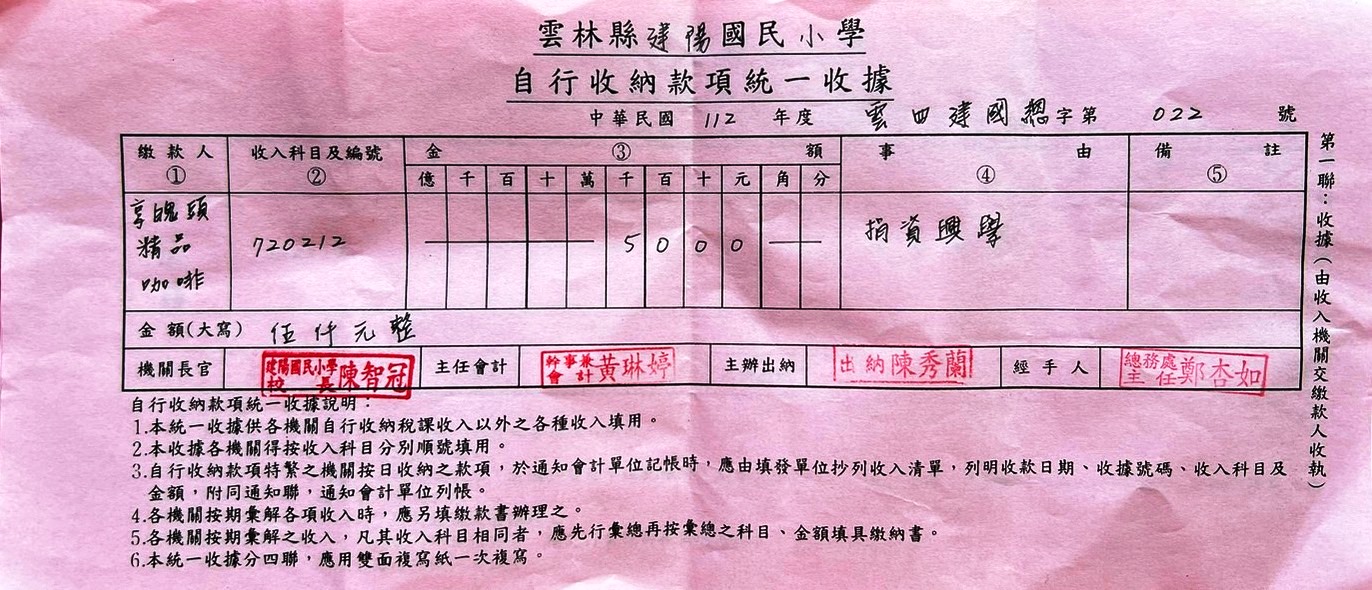 雲林縣建陽國民小學
自行收納款項統一收據
中華民國 112 年度 雲四建國總字第 022 號
繳款人 收入科目及編號 金 ③ 額 事 由 備 註
① ② 億 千 百 十 萬 千 百 十 元 角 分 ④ ⑤
享魄頭
精品 720212 5 0 0 0 捐資興學
咖啡
金額(大寫) 伍仟元整
機關長官 建陽國民小學校長陳智冠 主任會計 幹事兼會計黃琳婷 主辦出納 出納陳秀蘭 經手人 總務處主任鄭杏如
自行收納款項統一收據說明：
1.本統一收據供各機關自行收納稅課收入以外之各種收入填用。
2.本收據各機關得按收入科目分別順號填用。
3.自行收納款項特繁之機關按日收納之款項，於通知會計單位記帳時，應由填發單位抄列收入清單，列明收款日期、收據號碼、收入科目及
金額，附同通知聯，通知會計單位列帳。
4.各機關按期彙解各項收入時，應另填繳款書辦理之。
5.各機關按期彙解之收入，凡其收入科目相同者，應先行彙總再按彙總之科目、金額填具繳納書。
6.本統一收據分四聯，應用雙面複寫紙一次複寫。
第一聯：收據（由收入機關交繳款人收執）